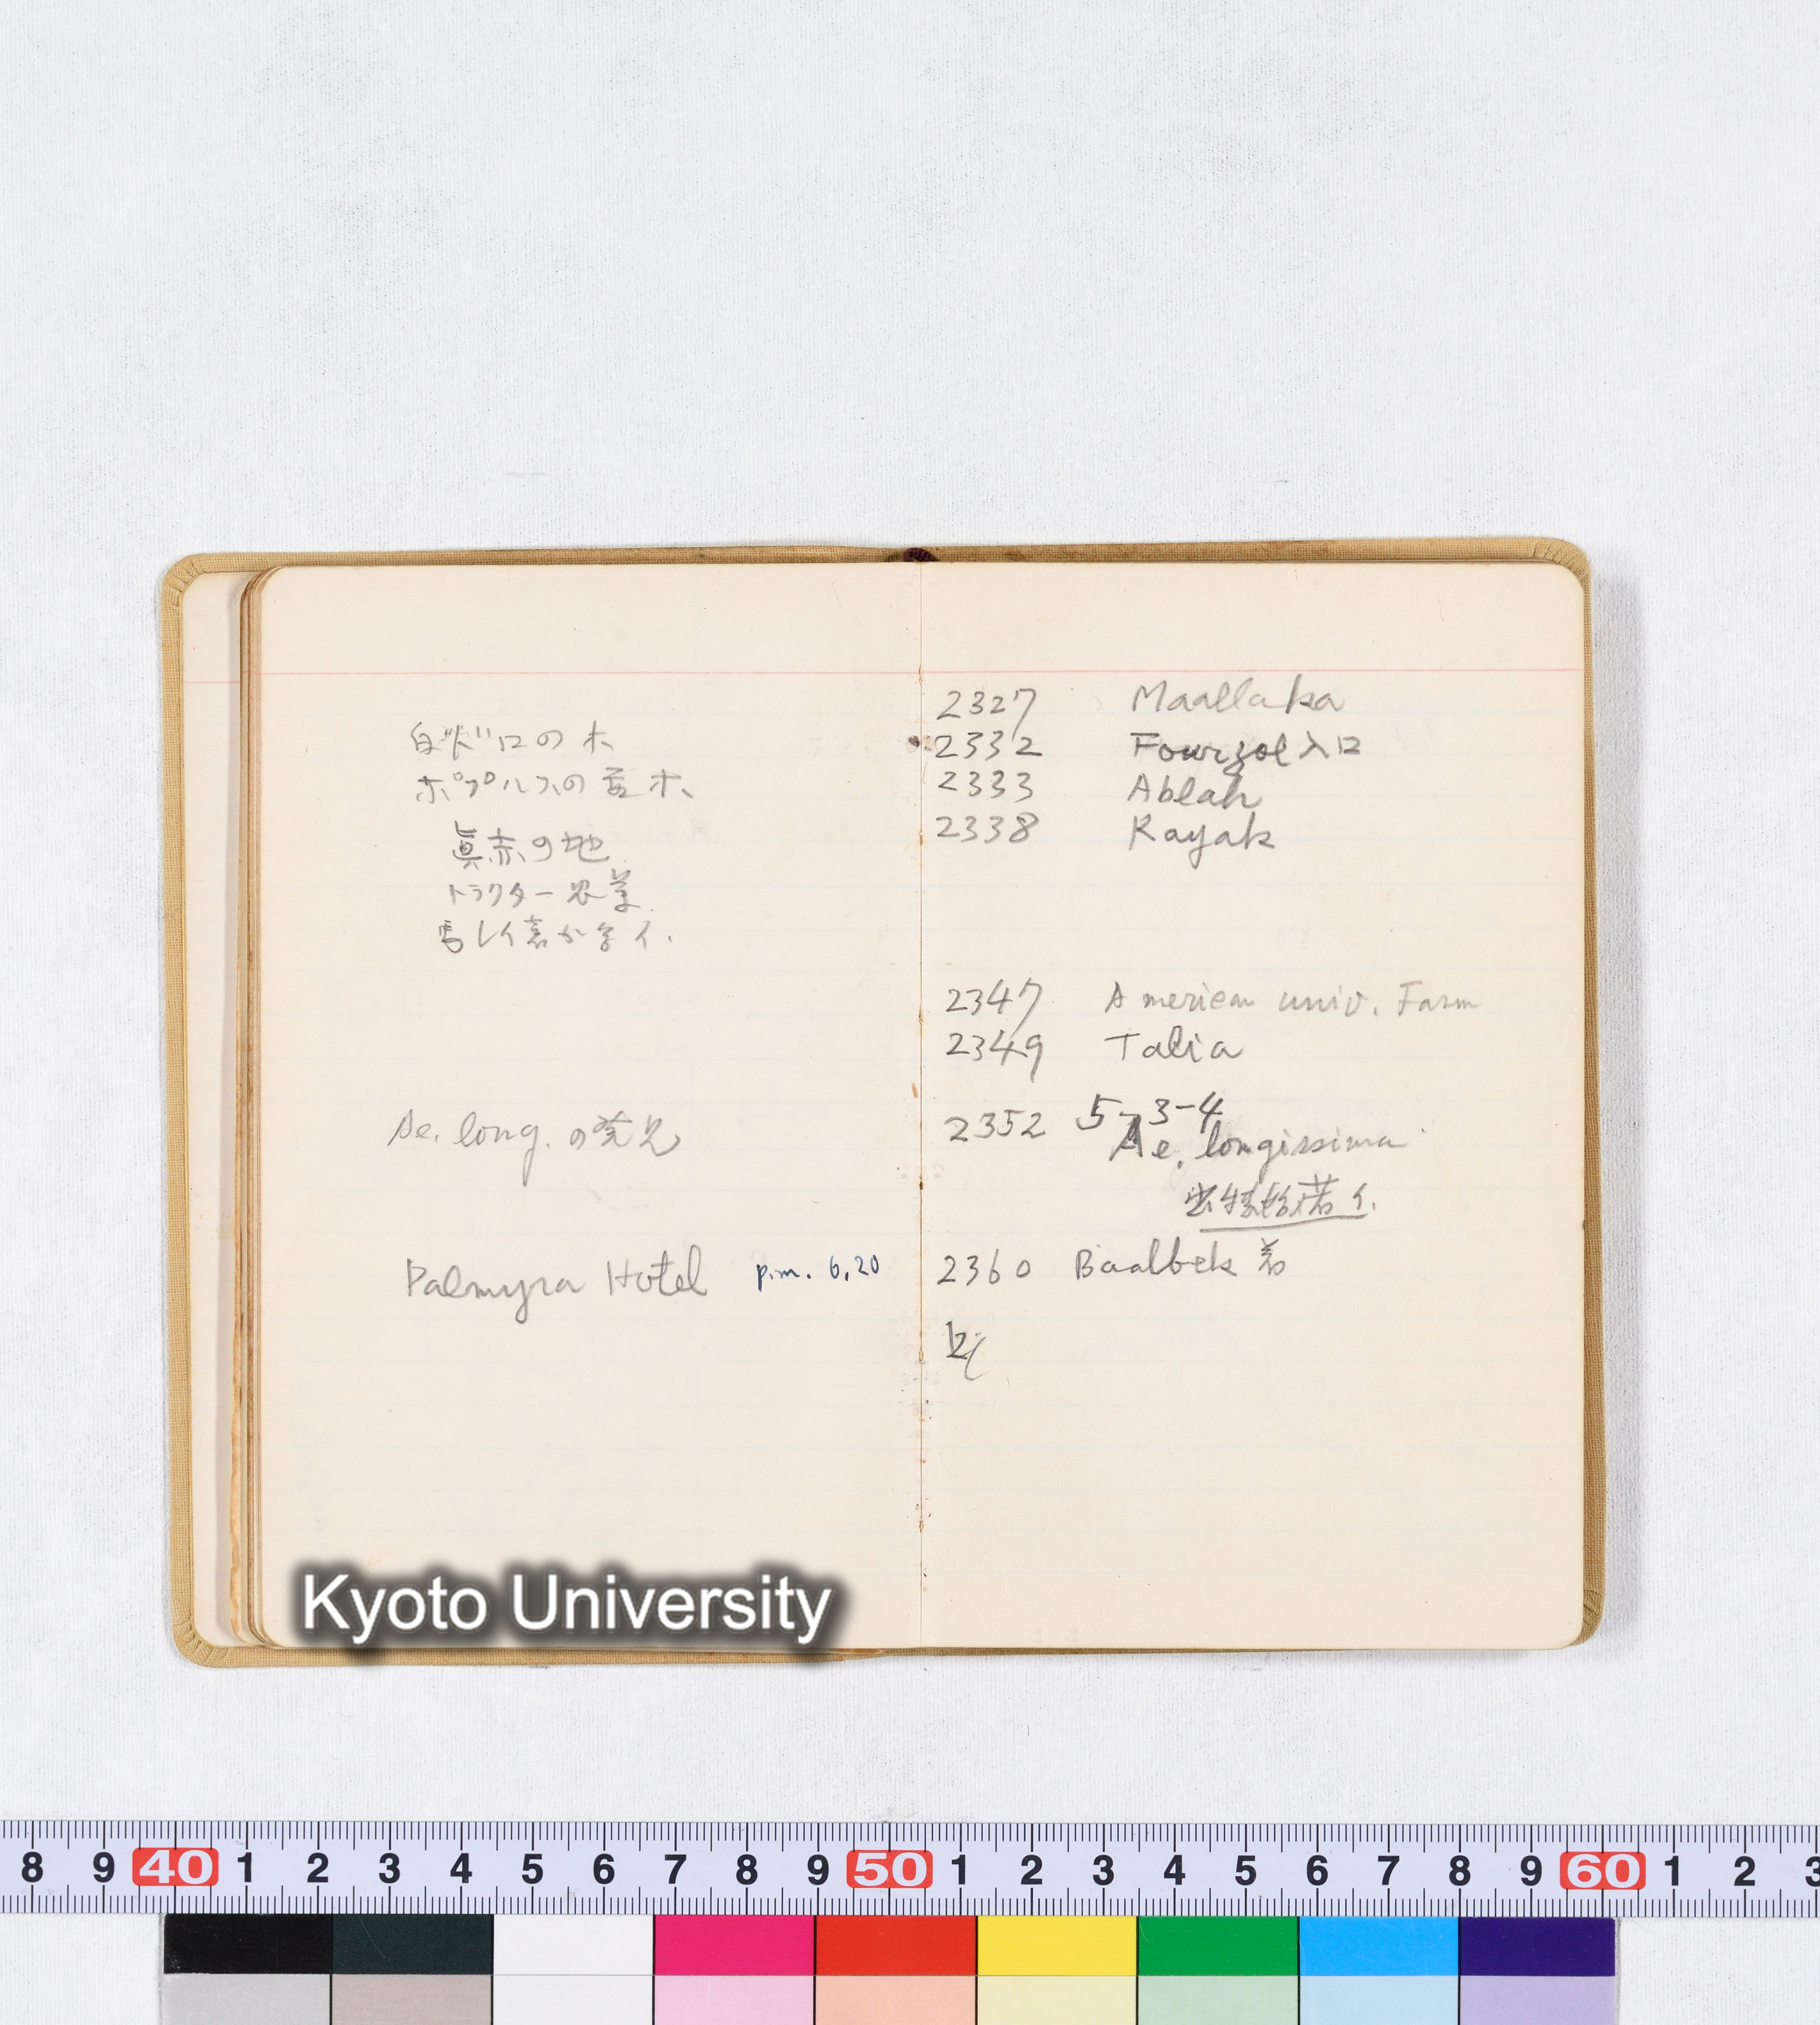 ポプルスの苗木、
眞赤の地
トラクター農業
Ae. long. の発見
Palmyra Hotel p.m. 6,20
2327 Maallaka
2332 Fourzol 入口
2333 Ablah
2338 Rayak
2347 American univ. Farm
2349 Talia
2352 5-3-4
Ae. longissima
2360 Baalbek 着
Kyoto University
8 9 40 1 2 3 4 5 6 7 8 9 50 1 2 3 4 5 6 7 8 9 60 1 2 3